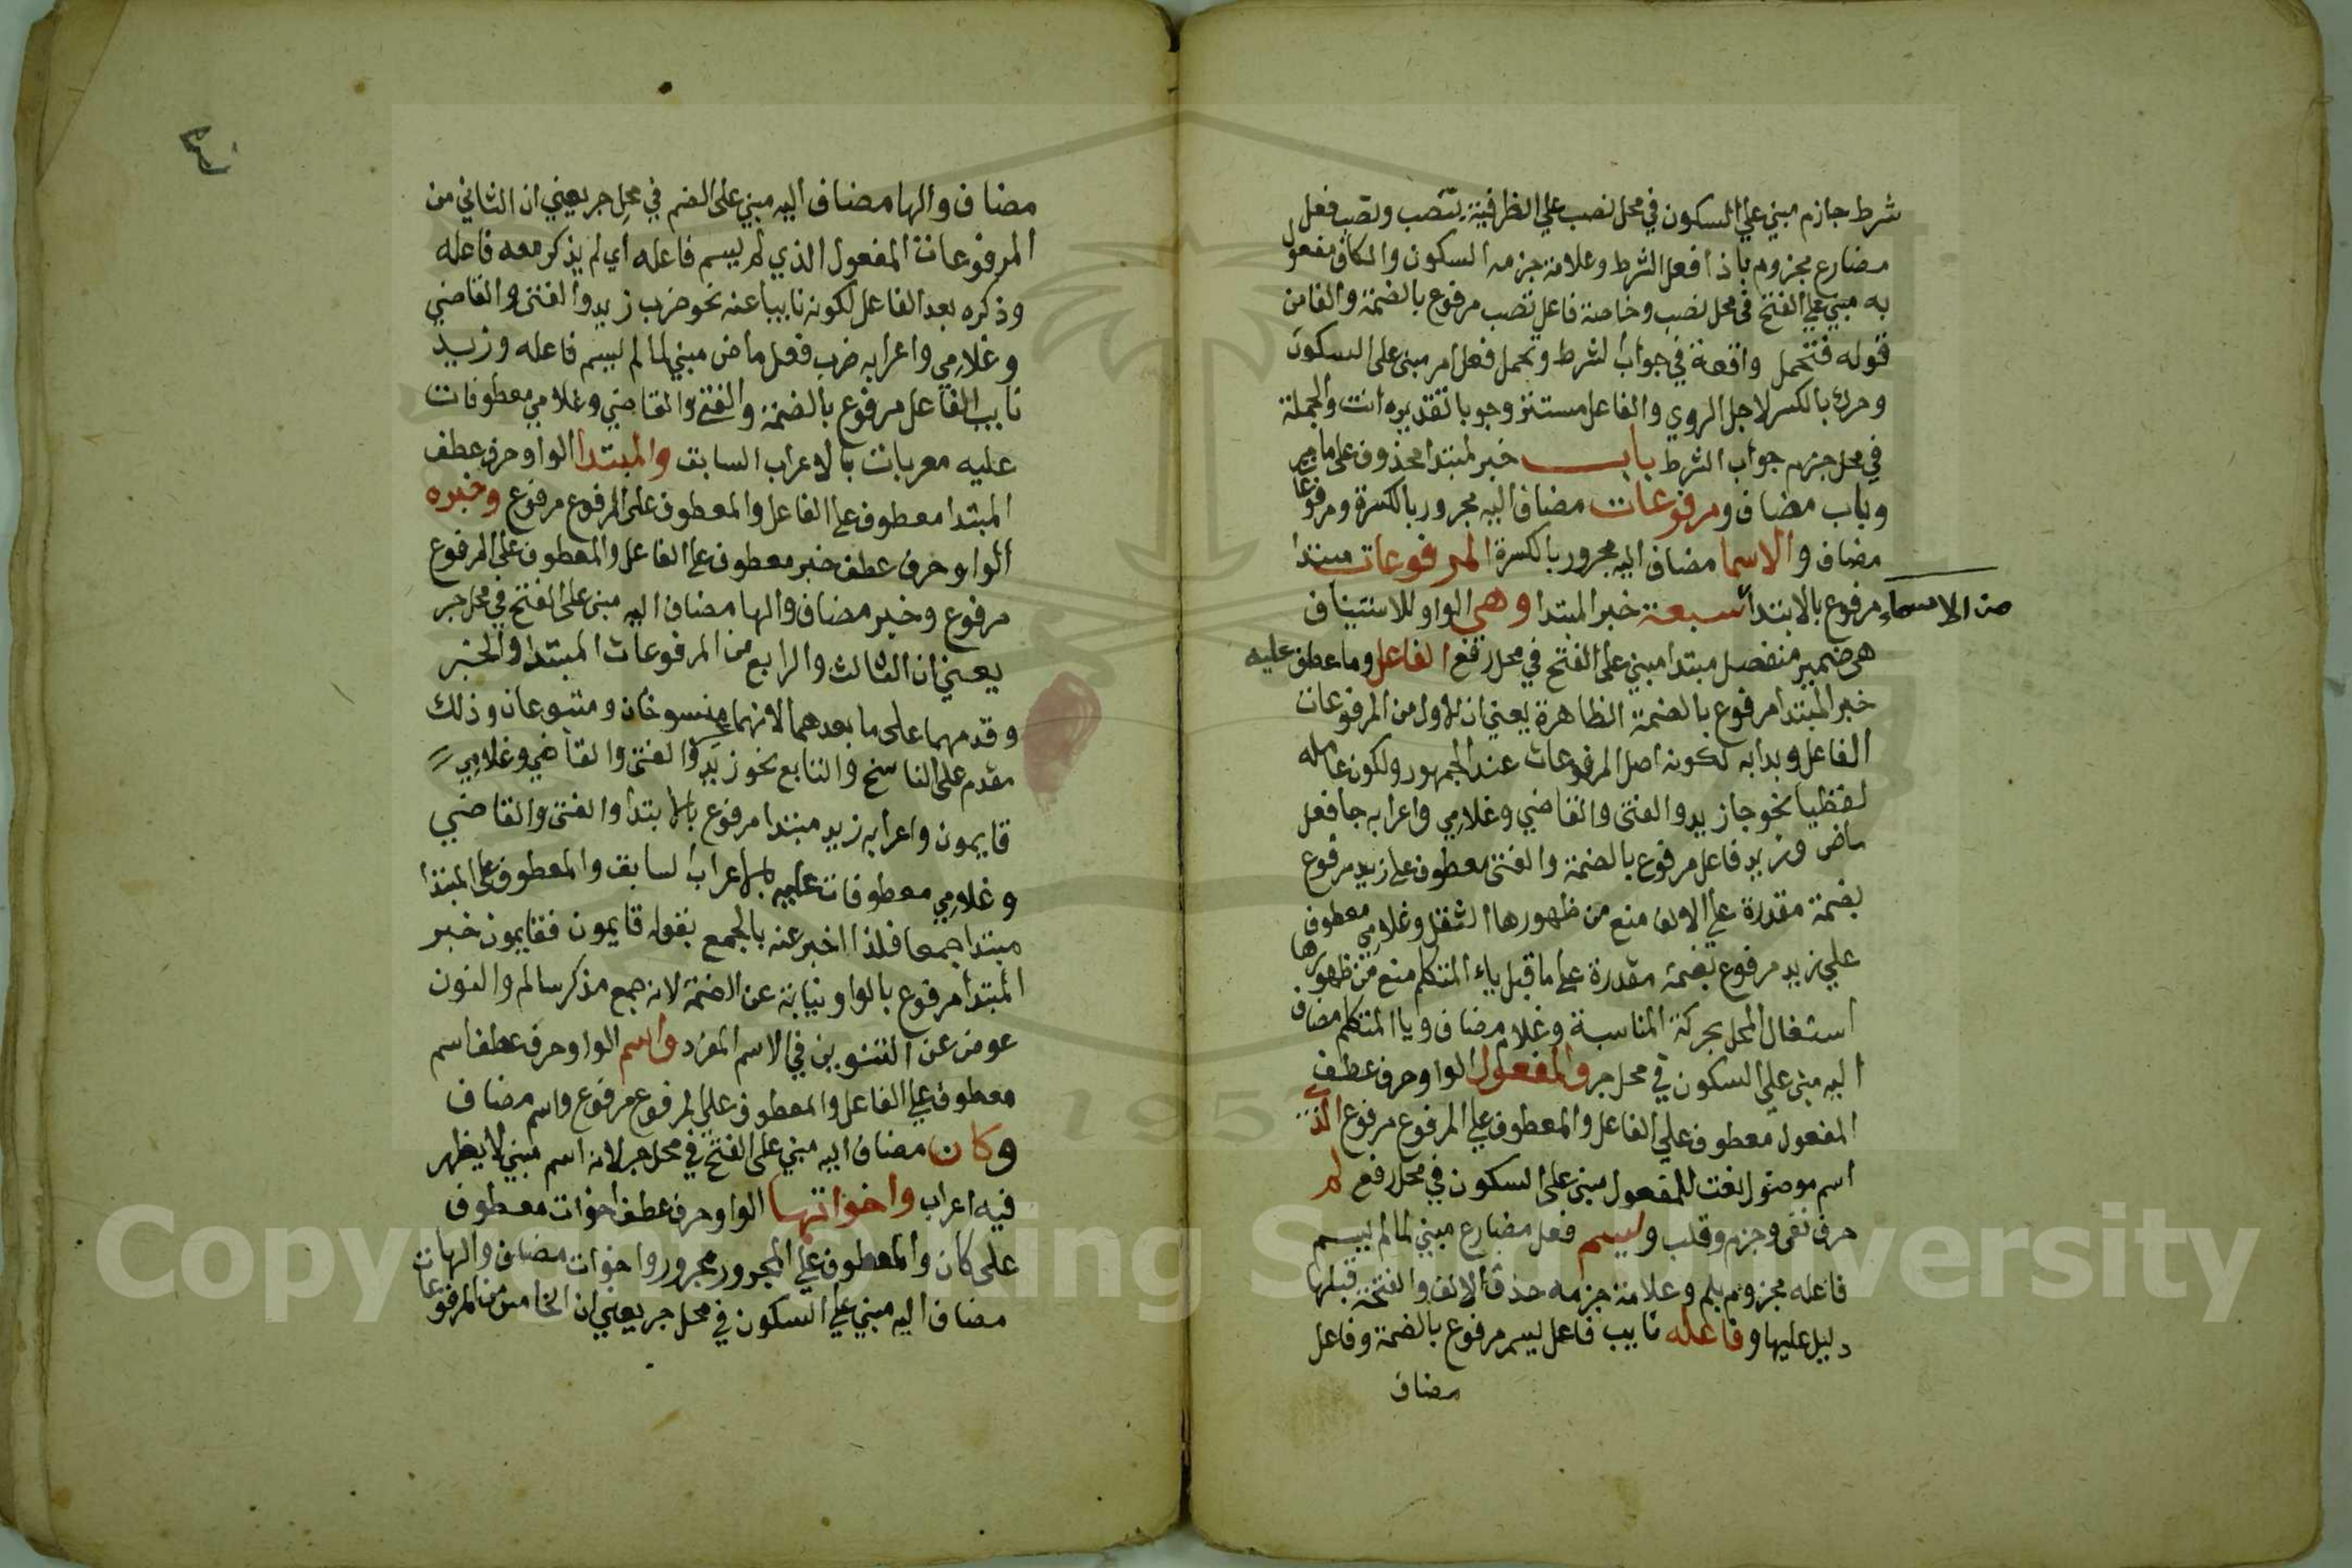 شرط جازم مبني علي السكون في محل نصب علي الظرفية بتصب وتصب فعل
مضارع مجزوم باذا فعل الشرط وعلامة جزمه السكون والكاف مفعول
به مبني علي الفتح في محل نصب وخاصة فاعل تصب مرفوع بالضمة والفا من
قوله فتحمل واقعة في جواب الشرط وتحمل فعل امر مبني على السكون
وحرك بالكسر لاجل الروي والفاعل مستتر وجوبا تقديره انت والجملة
في محل جزم جواب الشرط باب خبر لمبتدا محذوف على ما مر
وباب مضاف ومرفوعات مضاف اليه مجرور بالكسرة ومرفوعات
مضاف والاسما مضاف اليه مجرور بالكسرة المرفوعات مبتدا
من الاسماء مرفوع بالابتدا سبعة خبر المبتدا وهي الواو للاستيناف
هى ضمير منفصل مبتدا مبني على الفتح في محل رفع الفاعل وما عطف عليه
خبر المبتدا مرفوع بالضمة الظاهرة يعني ان الاول من المرفوعات
الفاعل وبدا به لكونه اصل المرفوعات عند الجمهور ولكون عامله
لفظيا نحو جا زيد والفتى والقاضي وغلامي واعرابه جا فعل
ماض وزيد فاعل مرفوع بالضمة والفتى معطوف علي زيد مرفوع
بضمة مقدرة علي الالف منع من ظهورها الثقل وغلامي معطوف
علي زيد مرفوع بضمة مقدرة علي ما قبل ياء المتكلم منع من ظهورها
اشتغال المحل بحركة المناسبة وغلام مضاف ويا المتكلم مضاف
اليه مبني علي السكون في محل جر والمفعول الواو حرف عطف
المفعول معطوف علي الفاعل والمعطوف علي المرفوع مرفوع الذي
اسم موصول نعت للمفعول مبني على السكون في محل رفع لم
حرف نفي وجزم وقلب وليسم فعل مضارع مبني لما لم يسم
فاعله مجزوم بلم وعلامة جزمه حذف الالف والفتحة قبلها
دليل عليها وفاعله نايب فاعل يسم مرفوع بالضمة وفاعل
مضاف
مضاف والها مضاف اليه مبني على الضم في محل جر يعني ان الثاني من
المرفوعات المفعول الذي لم يسم فاعله اي لم يذكر معه فاعله
وذكره بعد الفاعل لكونه نايبا عنه نحو ضرب زيد والفتى والقاضي
وغلامي واعرابه ضرب فعل ماض مبني لما لم يسم فاعله وزيد
نايب الفاعل مرفوع بالضمة والفتى والقاضي وغلامي معطوفات
عليه معربات بالاعراب السابق والمبتدا الواو حرف عطف
المبتدا معطوف علي الفاعل والمعطوف على المرفوع مرفوع وخبره
الواو حرف عطف خبر معطوف علي الفاعل والمعطوف على المرفوع
مرفوع وخبر مضاف والها مضاف اليه مبني على الفتح في محل جر
يعني ان الثالث والرابع من المرفوعات المبتدا والخبر
وقدمهما على ما بعدهما لانهما منسوخان ومتبوعان وذلك
مقدم على الناسخ والتابع نحو زيد والفتى والقاضي وغلامي
قايمون واعرابه زيد مبتدا مرفوع بالابتدا والفتى والقاضي
وغلامي معطوفات عليه بالاعراب السابق والمعطوف على المبتدا
مبتدا جمعا فلذا اخبر عنه بالجمع بقوله قايمون فقايمون خبر
المبتدا مرفوع بالواو نيابة عن الضمة لانه جمع مذكر سالم والنون
عوض عن التنوين في الاسم المفرد واسم الواو حرف عطف اسم
معطوف علي الفاعل والمعطوف علي المرفوع مرفوع واسم مضاف
وكان مضاف اليه مبني على الفتح في محل جر لانه اسم مبني لا يظهر
فيه اعراب واخواتها الواو حرف عطف اخوات معطوف
على كان والمعطوف علي المجرور مجرور واخوات مضاف والها
مضاف اليه مبني علي السكون في محل جر يعني ان الخامس من المرفوعات
Copyright © King Saud University
1957